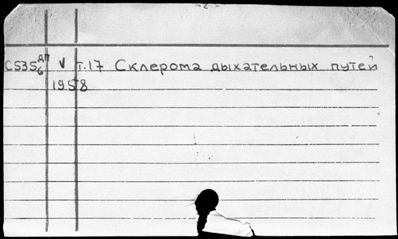 -2-
С535 ДП/6 V т.17 Склерома дыхательных путей
1958